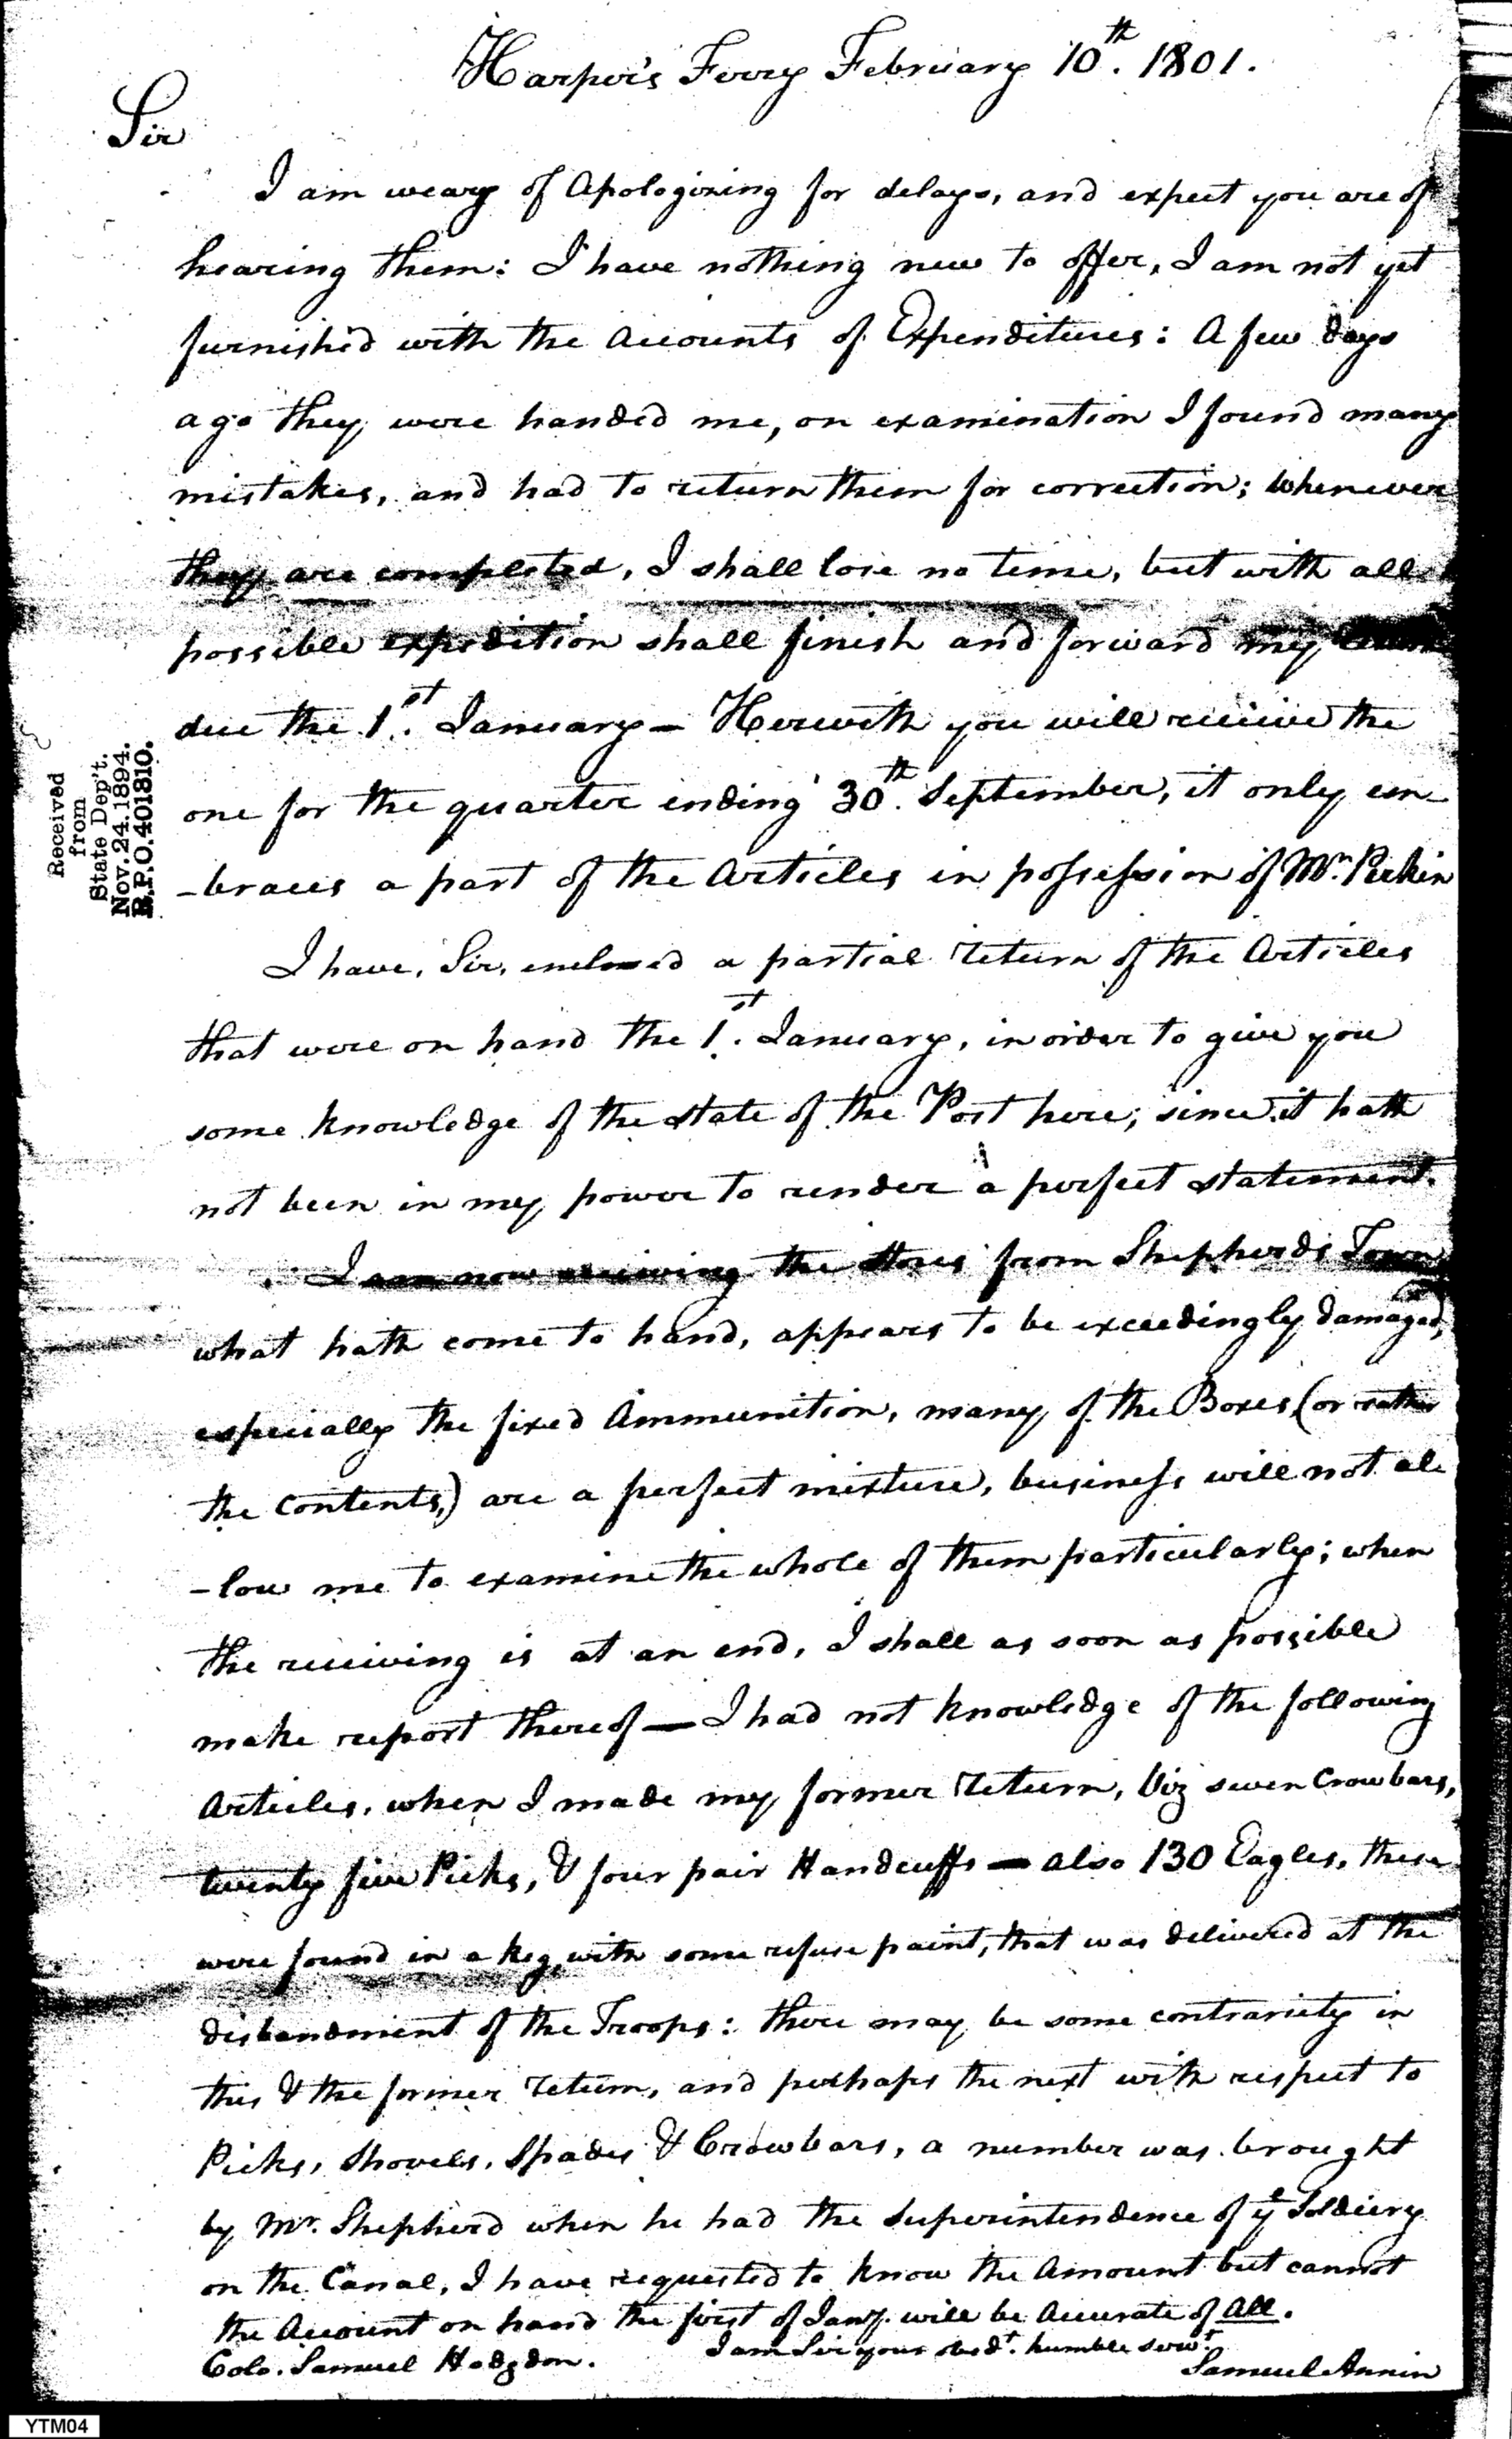 Harper's Ferry February 10th. 1801.
Sir
I am weary of Apologizing for delays, and expect you are of
hearing them: I have nothing new to offer, I am not yet
furnish'd with the Accounts of Expenditures: A few days
ago they were handed me, on examination I found many
mistakes, and had to return them for correction; whenever
they are completed, I shall lose no time, but with all
possible expedition shall finish and forward my
due the 1st. January — Herewith you will receive the
one for the quarter ending 30th. September, it only em
-braces a part of the Articles in possession of Mr. Perkin
I have, Sir, enclosed a partial return of the Articles
that were on hand the 1st. January, in order to give you
some knowledge of the state of the Post here; since it hath
not been in my power to render a perfect statement.
I am now receiving the Stores from Shepherds Town
what hath come to hand, appears to be exceedingly damaged,
especially the fixed Ammunition, many of the Boxes (or rather
the Contents,) are a perfect mixture, business will not al
-low me to examine the whole of them particularly; when
the receiving is at an end, I shall as soon as possible
make report thereof — I had not knowledge of the following
Articles, when I made my former return, Viz seven Crowbars,
twenty five Picks, & four pair Handcuffs — also 130 Eagles, these
were found in a keg, with some refuse paint, that was delivered at the
disbandment of the Troops: there may be some contrariety in
this & the former return, and perhaps the next with respect to
Picks, Shovels, Spades & Crowbars, a number was brought
by Mr. Shepherd when he had the Superintendence of ye Soldiery
on the Canal, I have requested to know the Amount but cannot
the Account on hand the first of Jany. will be Accurate of All.
I am Sir your obedt. humble servt.
Colo. Samuel Hodgdon.
Samuel Annin
Received
from
State Dep't.
Nov. 24. 1894.
R.P.O. 401810.
YTM04